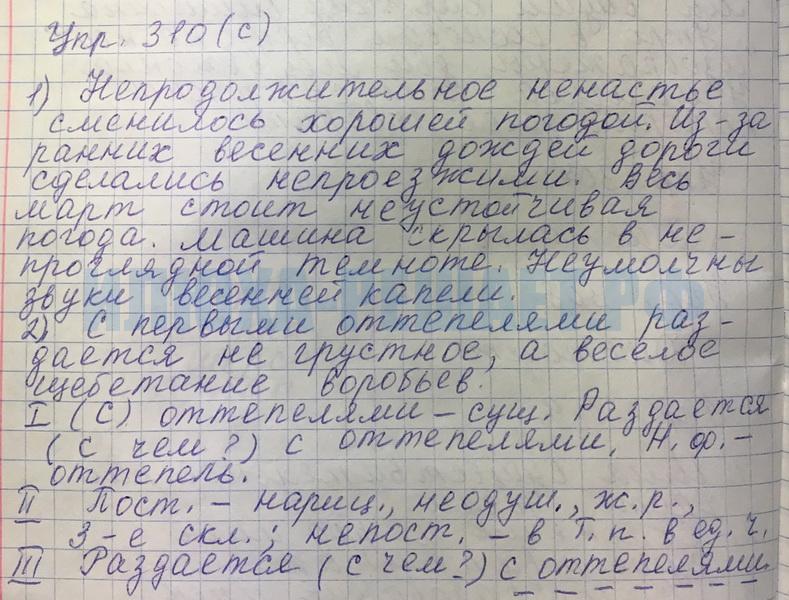 Упр. 310 (с)
1) Непродолжительное ненастье
сменилось хорошей погодой. Из-за
ранних весенних дождей дороги
сделались непроезжими. Весь
март стоит неустойчивая
погода. Машина скрылась в не-
проглядной темноте. Неумолчны
звуки весенней капели.
2) С первыми оттепелями раз-
дается не грустное, а веселое
щебетание воробьев.
I (С) оттепелями – сущ. Раздается
(с чем?) с оттепелями, Н.ф. –
оттепель.
II Пост. – нариц., неодуш., ж.р.,
3-е скл.; непост. – в Т.п. в ед.ч.
III Раздается (с чем?) с оттепелями